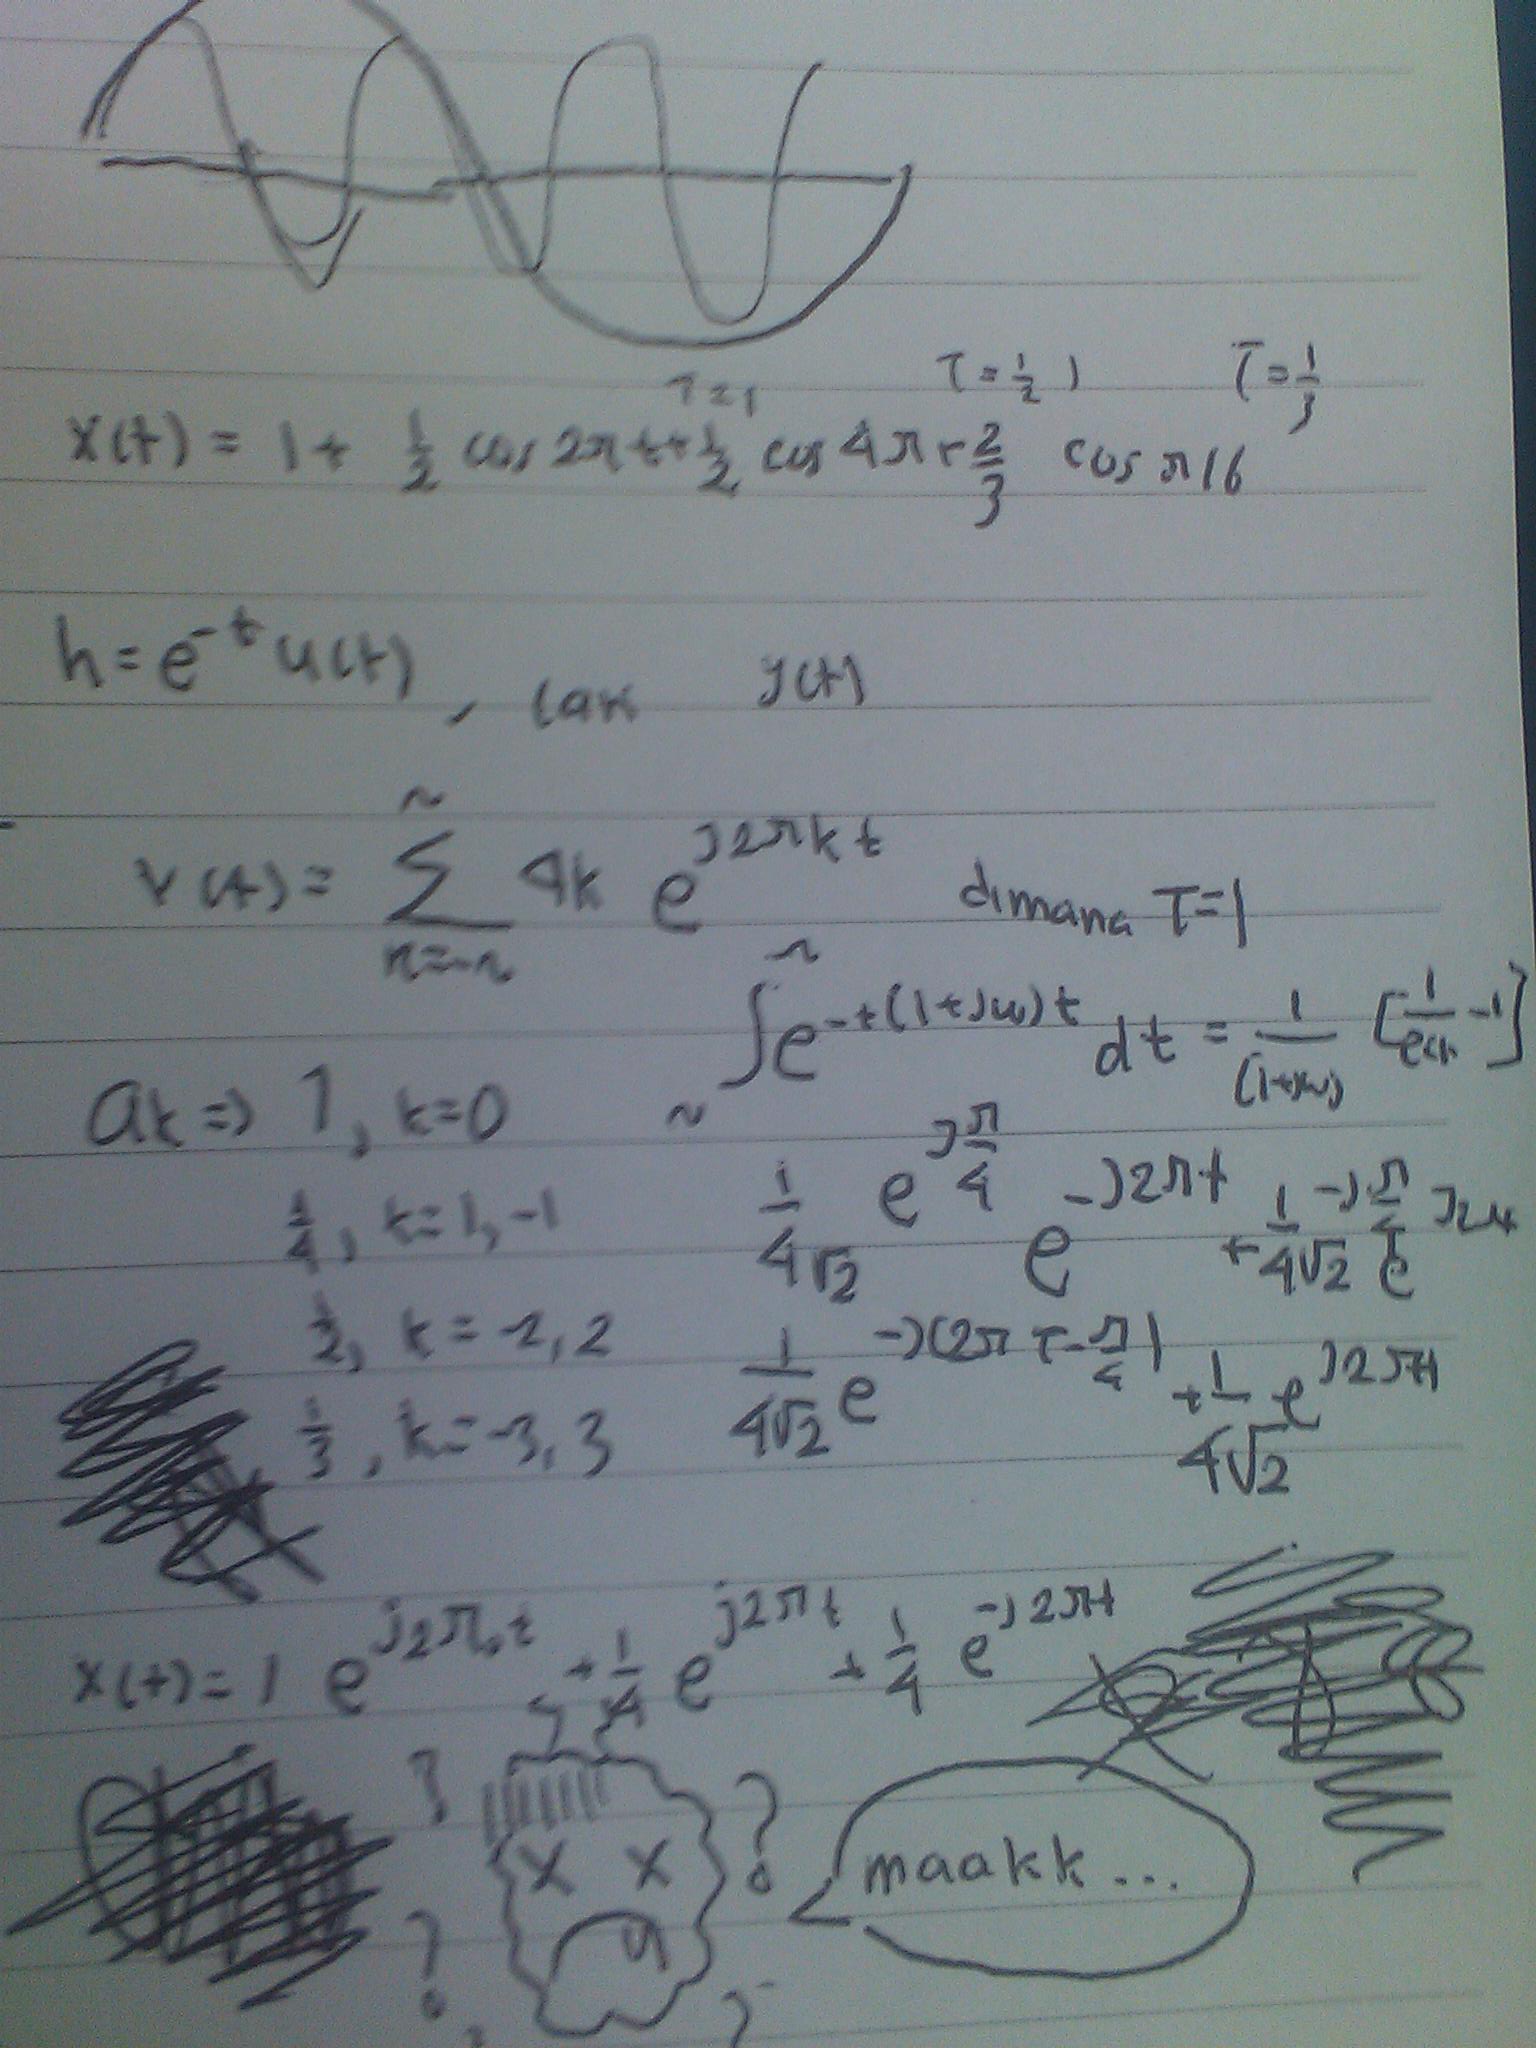 T=1 T=1/2 T=1/3
x(t) = 1 + 1/2 cos 2πt + 1/2 cos 4π + 2/3 cos π16
h = e^-t u(t), y(t)
x(t) = Σ ak e^j2πkt dimana T=1
∫ e^-t(1+jω)t dt = 1/(1+jω) [1/e -1]
ak => 1, k=0
1/4, k=1,-1 1/4√2 e^jπ/4 e^-j2πt + 1/4√2 e^-jπ/4
1/2, k=-2,2 1/4√2 e^-j(2πt-π/4) + 1/4√2 e^j2πt
1/3, k=-3,3
x(t) = 1 e^j2π.0.t + 1/4 e^j2πt + 1/4 e^-j2πt
? ?
x x maakk...
?